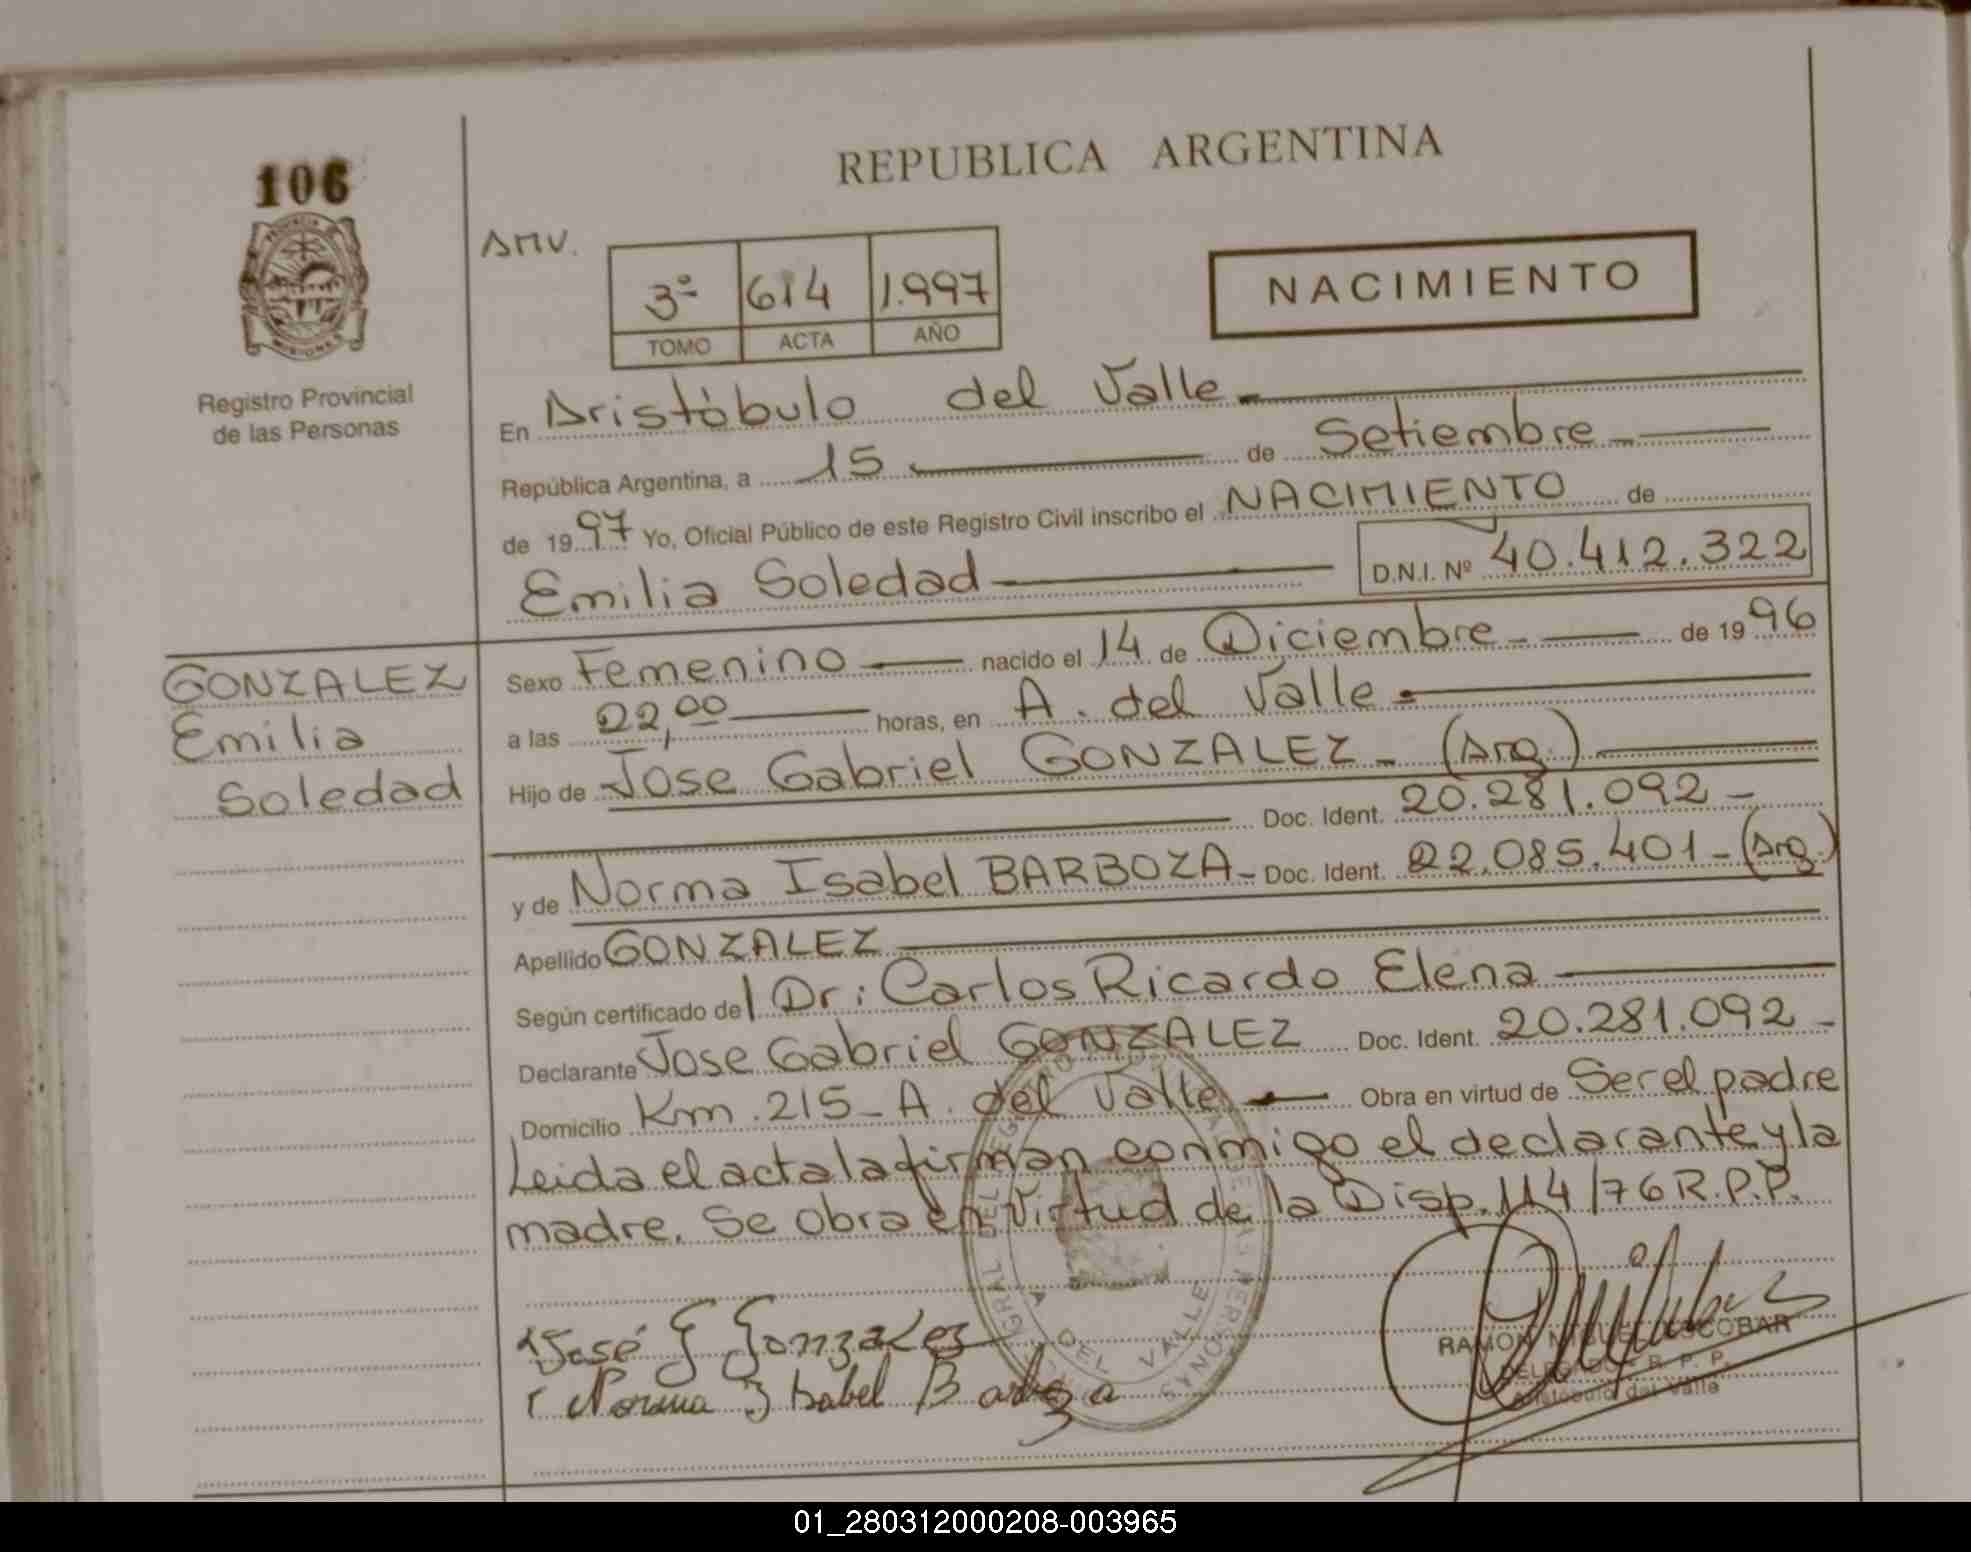 106
PROVINCIA
MISIONES
Registro Provincial
de las Personas
REPUBLICA ARGENTINA
AMV.
3º 614 1.997
TOMO ACTA AÑO
NACIMIENTO
En Aristóbulo del Valle
República Argentina, a 15 de Setiembre
de 1997 Yo, Oficial Público de este Registro Civil inscribo el NACIMIENTO de
Emilia Soledad D.N.I. Nº 40.412.322
GONZALEZ
Emilia
Soledad
Sexo Femenino nacido el 14 de Diciembre de 1996
a las 22,00 horas, en A. del Valle
Hijo de Jose Gabriel GONZALEZ - (Arg.)
Doc. Ident. 20.281.092 -
y de Norma Isabel BARBOZA - Doc. Ident. 22.085.401 - (Arg.)
Apellido GONZALEZ
Según certificado del Dr: Carlos Ricardo Elena
Declarante Jose Gabriel GONZALEZ Doc. Ident. 20.281.092 -
Domicilio Km. 215 - A. del Valle Obra en virtud de Ser el padre
Leida el acta la firman conmigo el declarante y la
madre. Se obra en virtud de la Disp. 114/76 R.P.P.
José G Gonzalez
Norma Isabel Barboza
A DEL VALLE
RAMON MIGUEL ESCOBAR
DELEGADO - R. P. P.
Aristóbulo del Valle
01_280312000208-003965